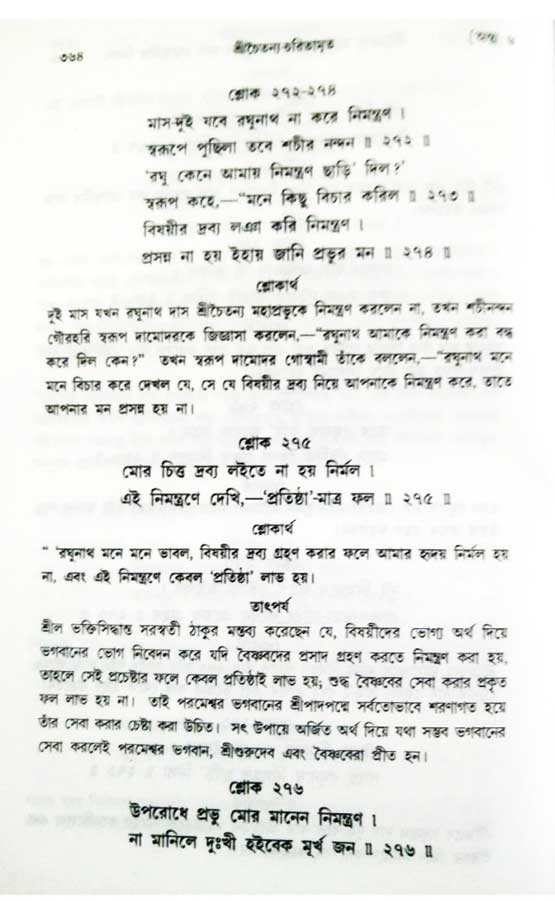 ৩৬৪
শ্রীচৈতন্য-চরিতামৃত
[অন্ত্য ৬
শ্লোক ২৭২-২৭৪
মাস-দুই যবে রঘুনাথ না করে নিমন্ত্রণ ।
স্বরূপে পুছিলা তবে শচীর নন্দন ॥ ২৭২ ॥
‘রঘু কেনে আমায় নিমন্ত্রণ ছাড়ি’ দিল?’
স্বরূপ কহে,—“মনে কিছু বিচার করিল ॥ ২৭৩ ॥
বিষয়ীর দ্রব্য লঞা করি নিমন্ত্রণ ।
প্রসন্ন না হয় ইহায় জানি প্রভুর মন ॥ ২৭৪ ॥
শ্লোকার্থ
দুই মাস যখন রঘুনাথ দাস শ্রীচৈতন্য মহাপ্রভুকে নিমন্ত্রণ করলেন না, তখন শচীনন্দন
গৌরহরি স্বরূপ দামোদরকে জিজ্ঞাসা করলেন,—“রঘুনাথ আমাকে নিমন্ত্রণ করা বন্ধ
করে দিল কেন?” তখন স্বরূপ দামোদর গোস্বামী তাঁকে বললেন,—“রঘুনাথ মনে
মনে বিচার করে দেখল যে, সে যে বিষয়ীর দ্রব্য নিয়ে আপনাকে নিমন্ত্রণ করে, তাতে
আপনার মন প্রসন্ন হয় না।
শ্লোক ২৭৫
মোর চিত্ত দ্রব্য লইতে না হয় নির্মল ।
এই নিমন্ত্রণে দেখি,—‘প্রতিষ্ঠা’-মাত্র ফল ॥ ২৭৫ ॥
শ্লোকার্থ
“ ‘রঘুনাথ মনে মনে ভাবল, বিষয়ীর দ্রব্য গ্রহণ করার ফলে আমার হৃদয় নির্মল হয়
না, এবং এই নিমন্ত্রণে কেবল ‘প্রতিষ্ঠা’ লাভ হয়।
তাৎপর্য
শ্রীল ভক্তিসিদ্ধান্ত সরস্বতী ঠাকুর মন্তব্য করেছেন যে, বিষয়ীদের ভোগ্য অর্থ দিয়ে
ভগবানের ভোগ নিবেদন করে যদি বৈষ্ণবদের প্রসাদ গ্রহণ করতে নিমন্ত্রণ করা হয়,
তাহলে সেই প্রচেষ্টার ফলে কেবল প্রতিষ্ঠাই লাভ হয়; শুদ্ধ বৈষ্ণবের সেবা করার প্রকৃত
ফল লাভ হয় না। তাই পরমেশ্বর ভগবানের শ্রীপাদপদ্মে সর্বতোভাবে শরণাগত হয়ে
তাঁর সেবা করার চেষ্টা করা উচিত। সৎ উপায়ে অর্জিত অর্থ দিয়ে যথা সম্ভব ভগবানের
সেবা করলেই পরমেশ্বর ভগবান, শ্রীগুরুদেব এবং বৈষ্ণবেরা প্রীত হন।
শ্লোক ২৭৬
উপরোধে প্রভু মোর মানেন নিমন্ত্রণ ।
না মানিলে দুঃখী হইবেক মূর্খ জন ॥ ২৭৬ ॥